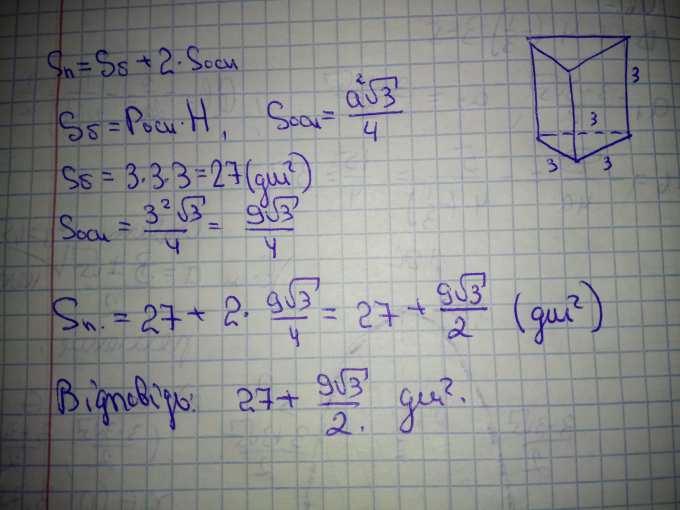 Sп = Sб + 2·Sосн
Sб = Pосн·H, Sосн = a²√3/4
Sб = 3·3·3 = 27 (дм²)
Sосн = 3²√3/4 = 9√3/4
Sп. = 27 + 2·9√3/4 = 27 + 9√3/2 (дм²)
Відповідь: 27 + 9√3/2. дм².
3
3
3
3